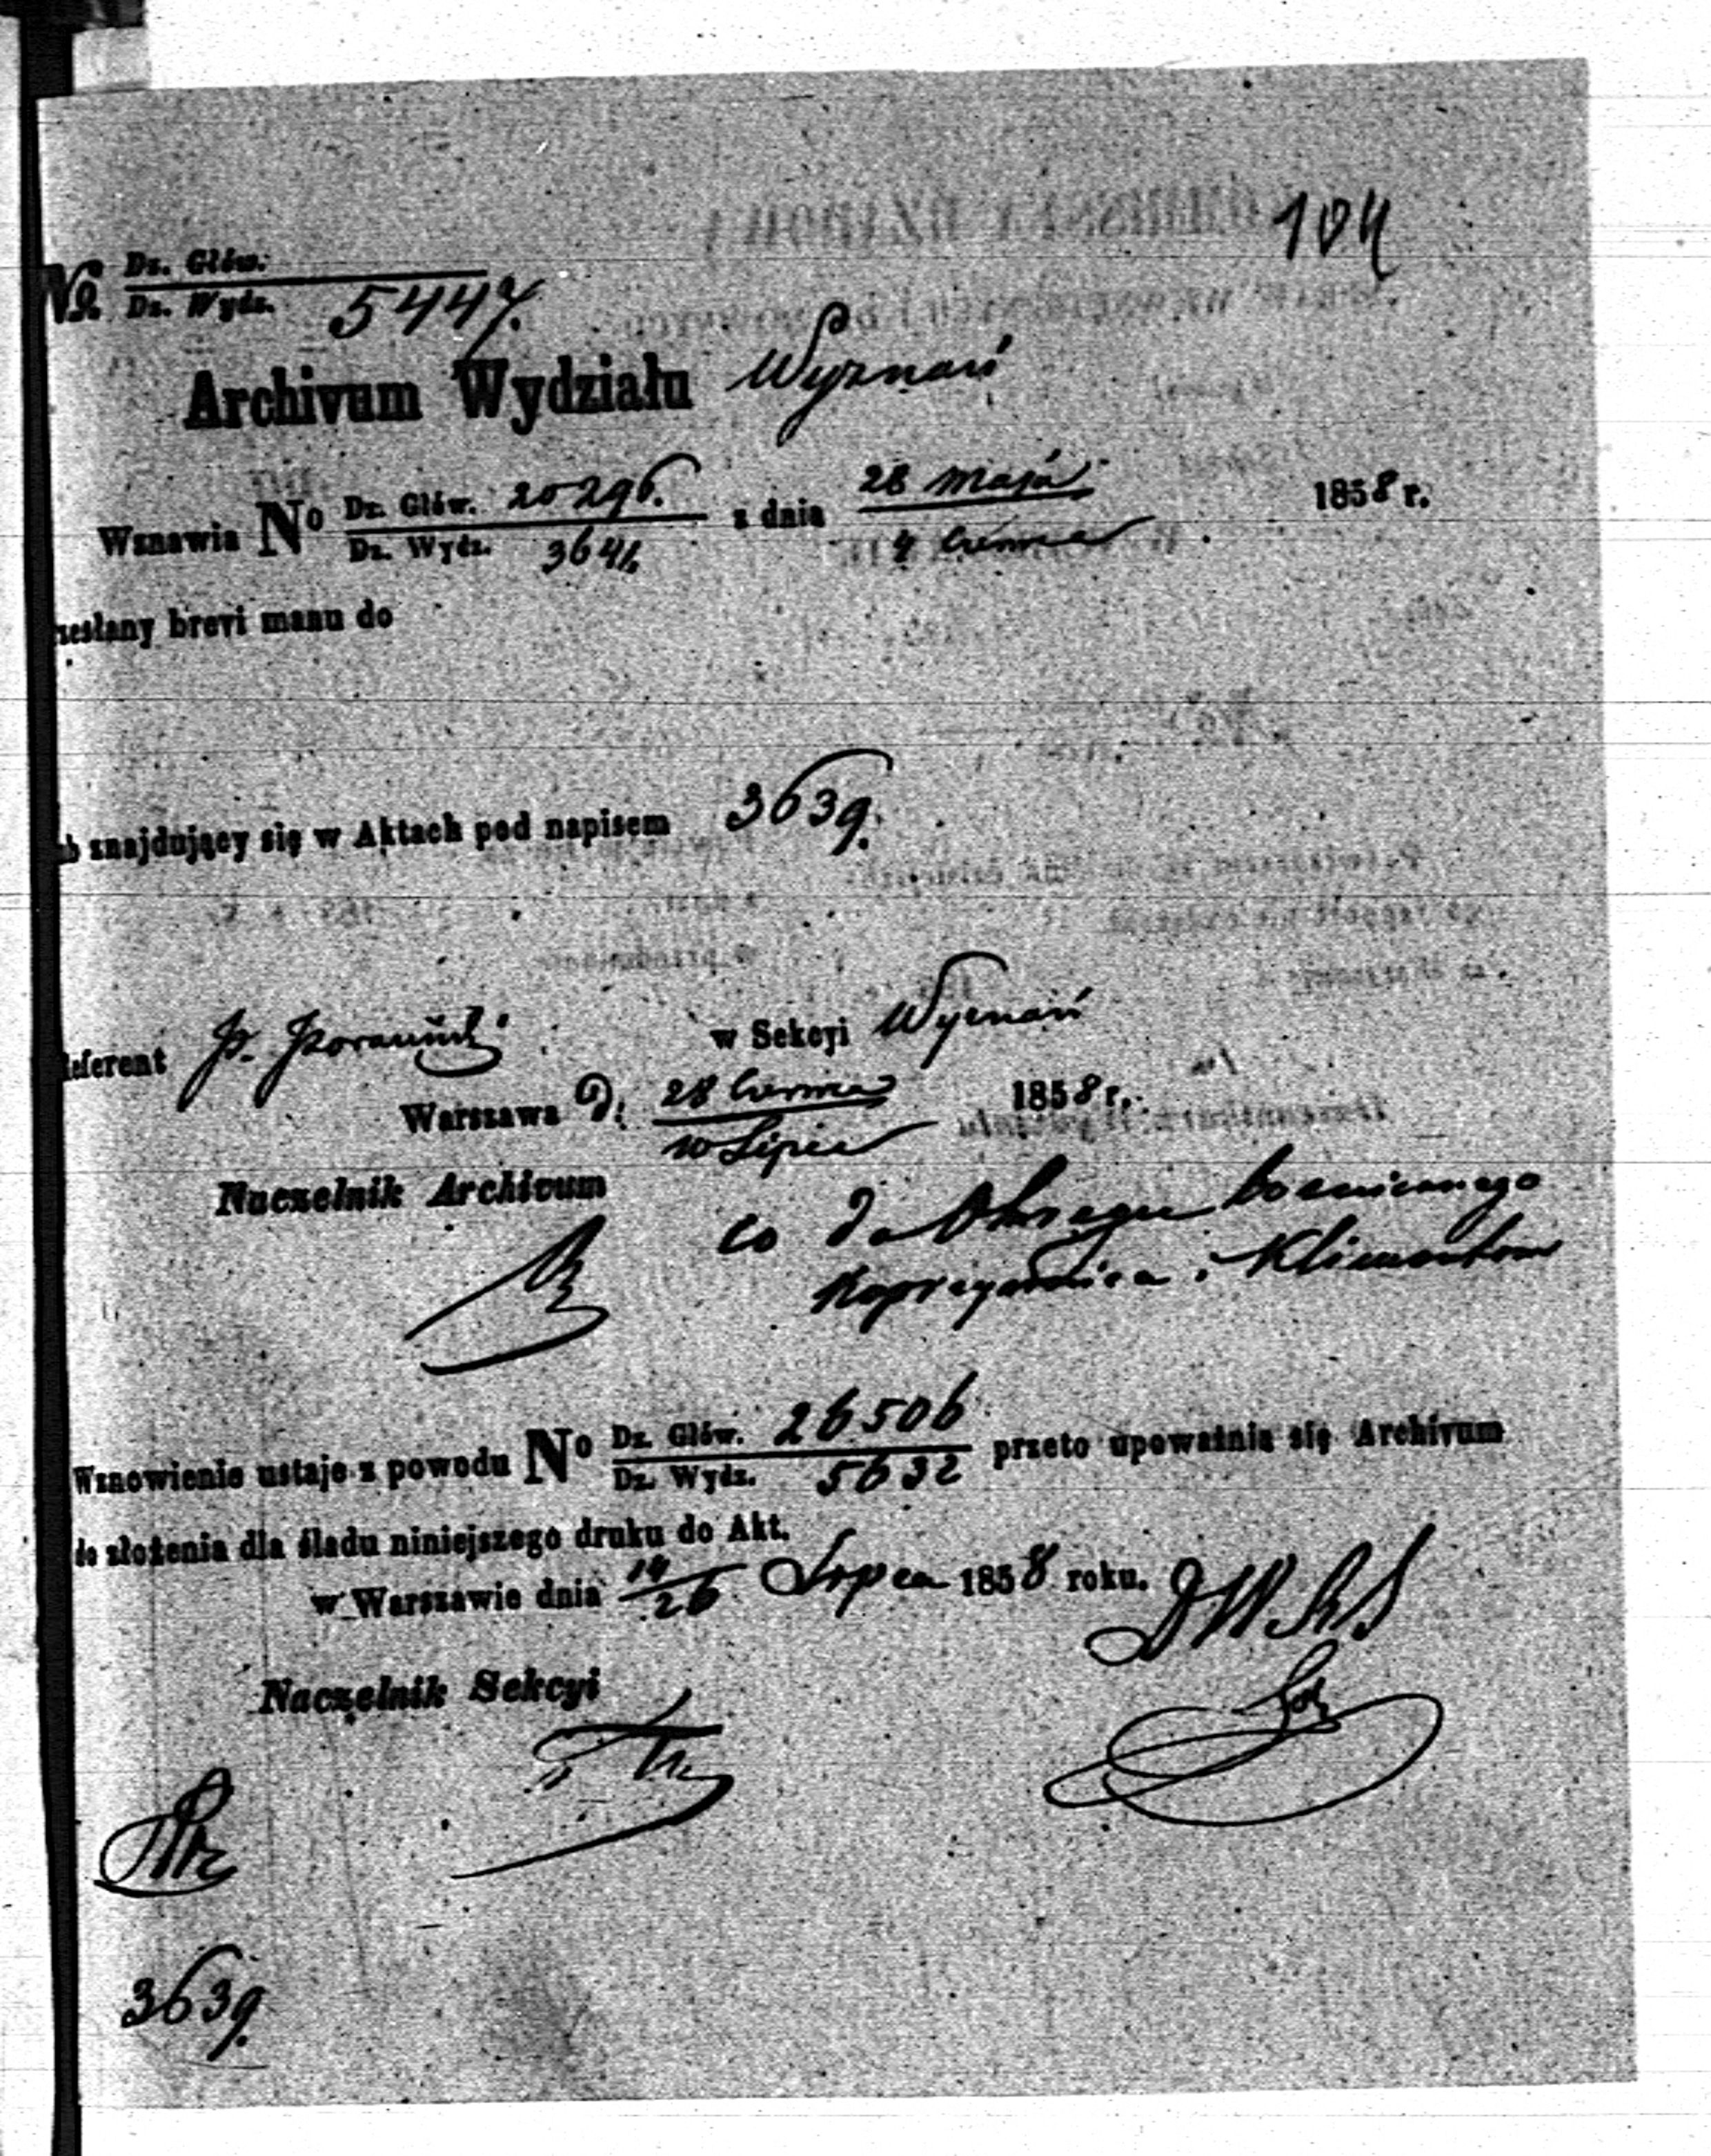 104
No. Dz. Głów.
Dz. Wydz. 5447.
Archivum Wydziału Wyznań
Wznawia No Dz. Głów. 20296. z dnia 28 Maja 1858 r.
Dz. Wydz. 3641. 9 Czerwca
esłany brevi manu do
b znajdujący się w Aktach pod napisem 3639.
eferent P. w Sekcyi Wyznań
Warszawa D. 28 Czerwca 1858 r.
10 Lipca
Naczelnik Archivum
co do Okręgu Bożniczego
Koprzywnica i Klimontów
Wznowienie ustaje z powodu No Dz. Głów. 26506 przeto upoważnia się Archivum
Dz. Wydz. 5632
do złożenia dla śladu niniejszego druku do Akt.
w Warszawie dnia 14/26 Lipca 1858 roku.
Naczelnik Sekcyi
3639.